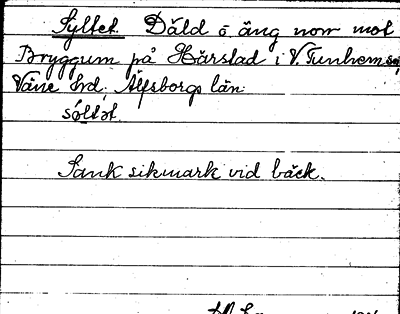 Syltet. Däld o äng norr mot
Bryggum på Hårstad i V. Tunhem sn,
Väne hd. Älfsborgs län.
sóltət.
Sank sikmark vid bäck.